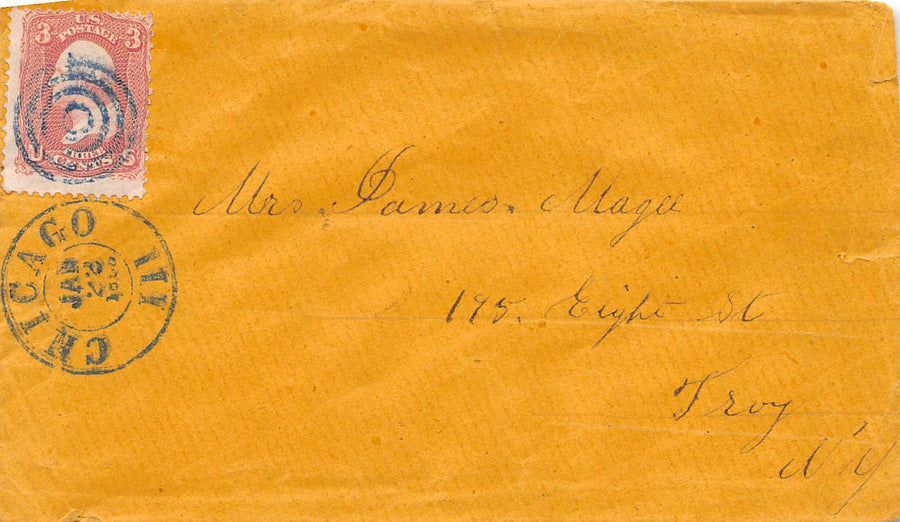 3 U.S. 3
POSTAGE
CENTS
CHICAGO Ill
JAN
22
Mrs. James. Magee
195. Eight St
Troy
NY